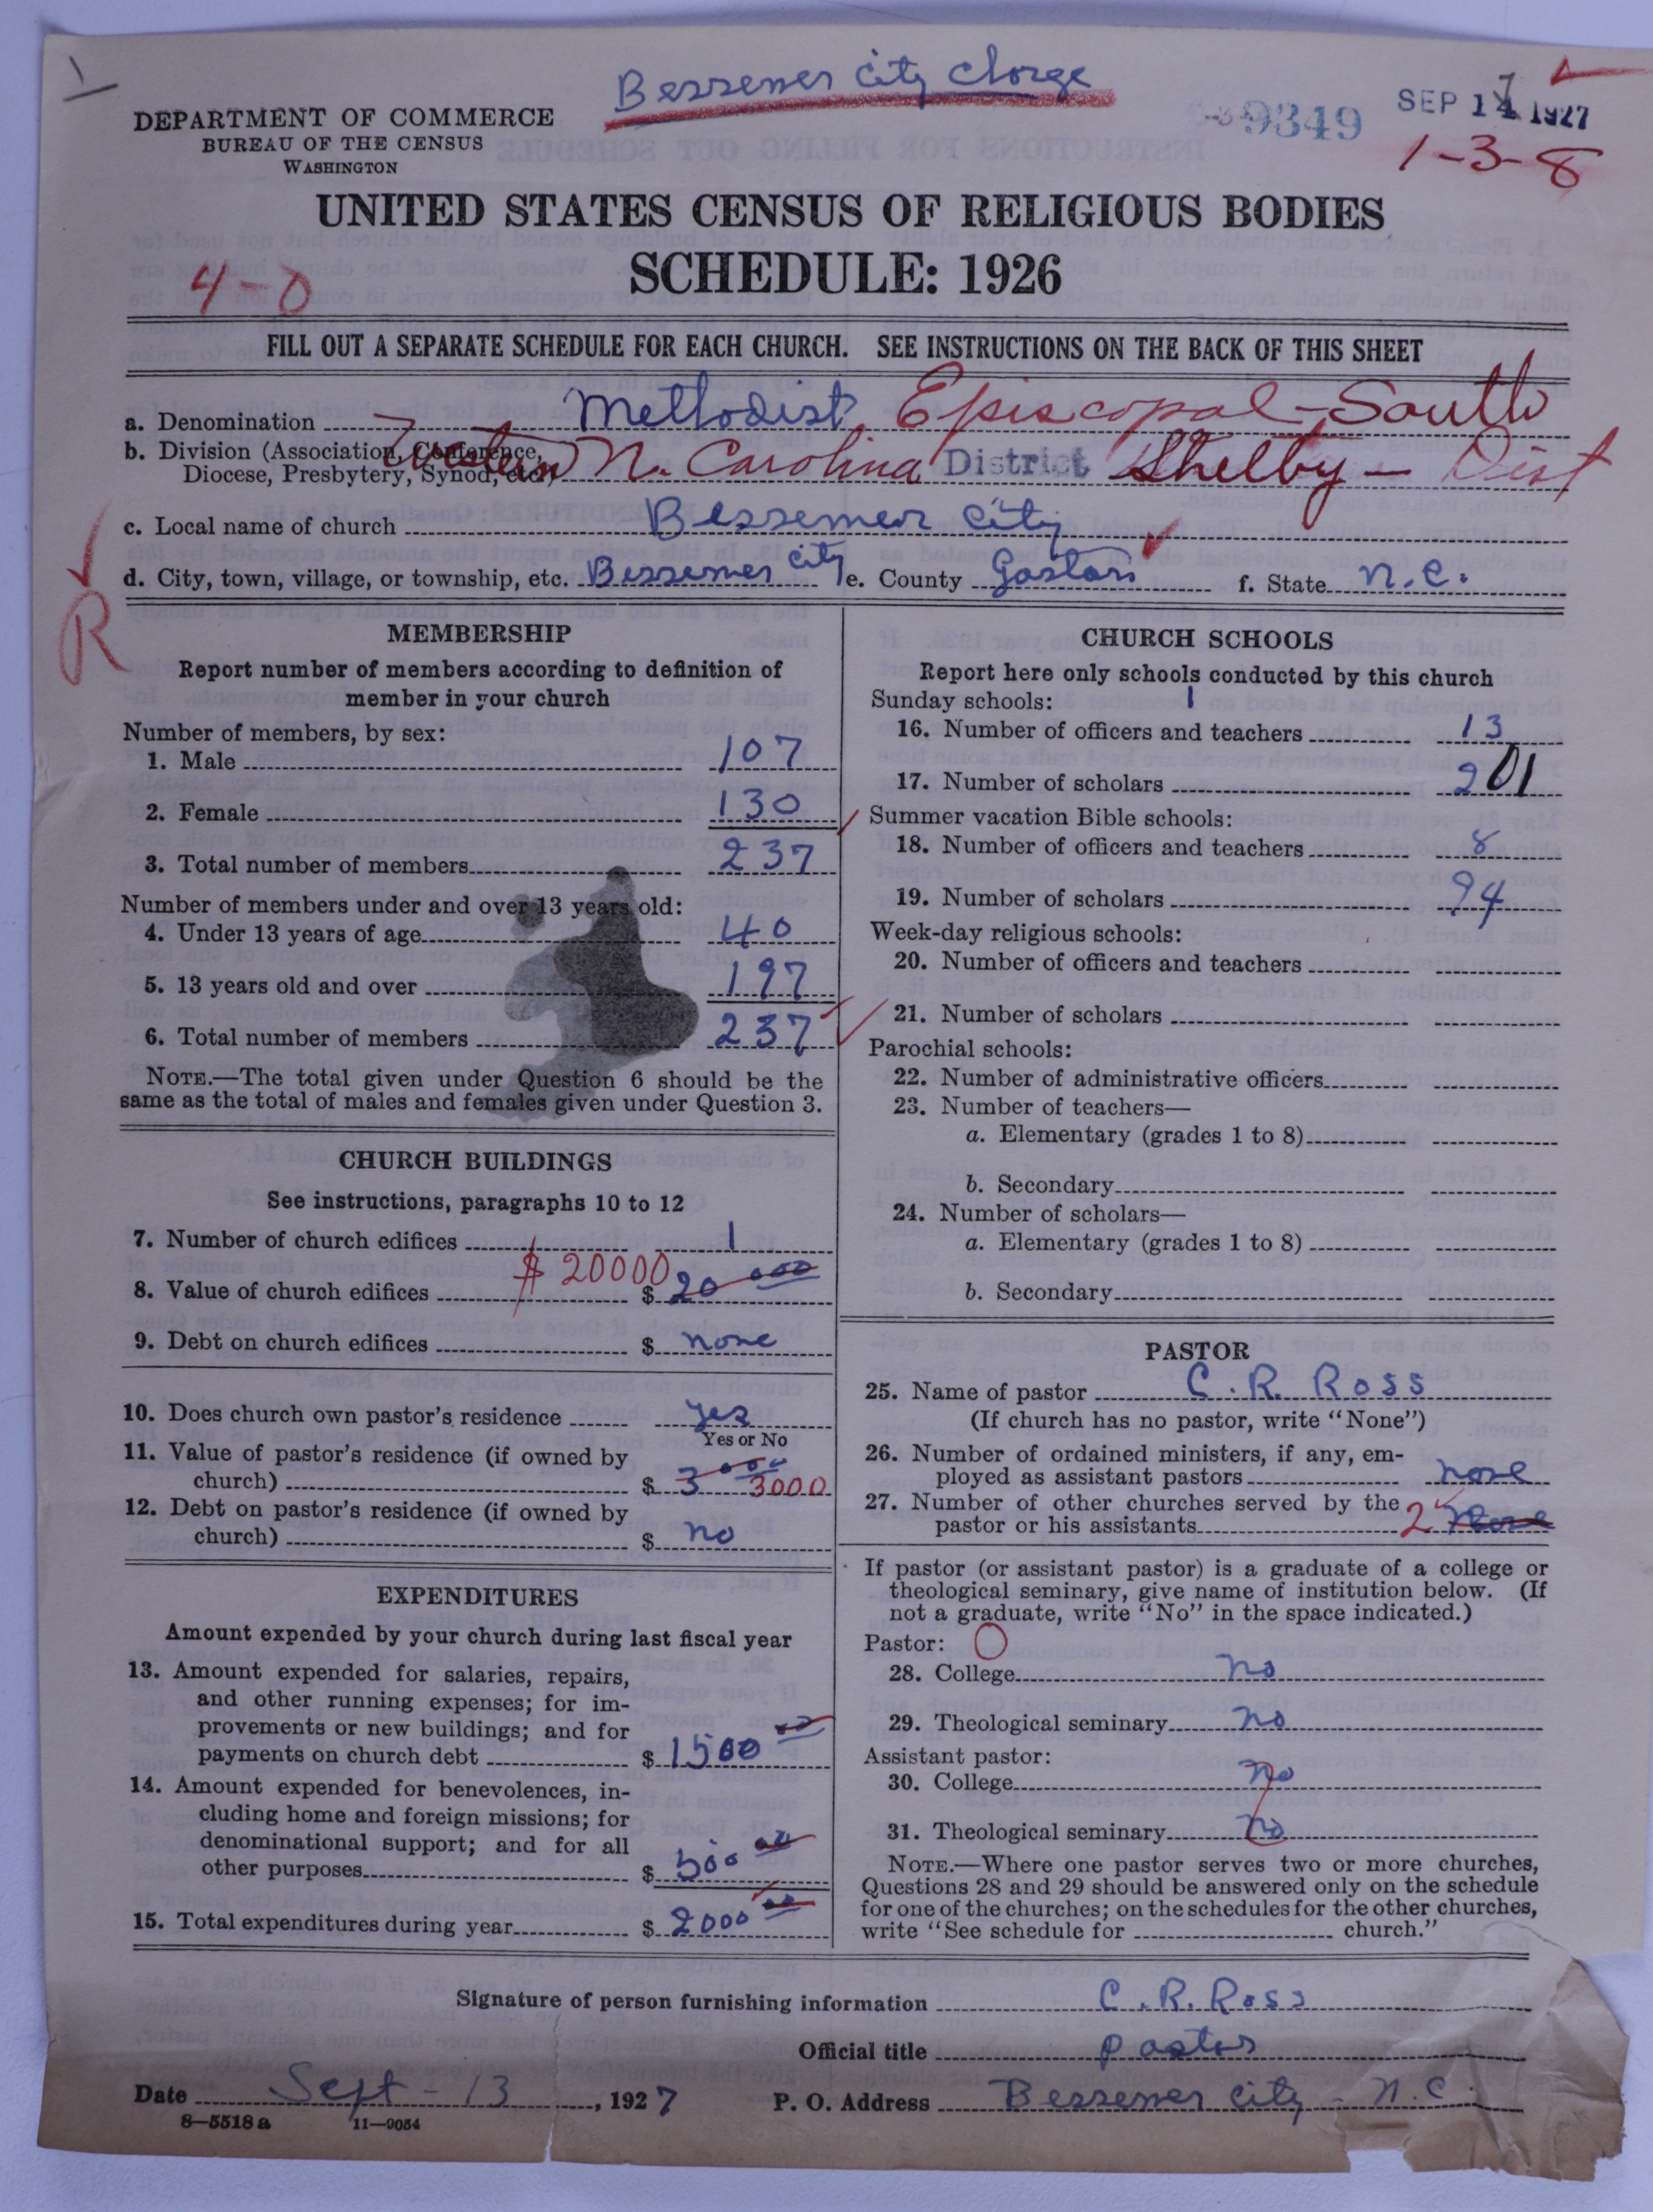 Bessemer City Charge
DEPARTMENT OF COMMERCE
BUREAU OF THE CENSUS
WASHINGTON
9349
SEP 14 1927
1-3-8
UNITED STATES CENSUS OF RELIGIOUS BODIES
SCHEDULE: 1926
4-0
FILL OUT A SEPARATE SCHEDULE FOR EACH CHURCH. SEE INSTRUCTIONS ON THE BACK OF THIS SHEET
a. Denomination Methodist Episcopal-South
b. Division (Association, Conference, Diocese, Presbytery, Synod, etc.) Western N. Carolina District Shelby - Dist
c. Local name of church Bessemer City
d. City, town, village, or township, etc. Bessemer City e. County Gaston f. State N.C.
R
MEMBERSHIP
Report number of members according to definition of
member in your church
Number of members, by sex:
1. Male 107
2. Female 130
3. Total number of members 237
Number of members under and over 13 years old:
4. Under 13 years of age 40
5. 13 years old and over 197
6. Total number of members 237
NOTE.—The total given under Question 6 should be the
same as the total of males and females given under Question 3.
CHURCH BUILDINGS
See instructions, paragraphs 10 to 12
7. Number of church edifices 1
8. Value of church edifices $20000 $ 20 000
9. Debt on church edifices $ none
10. Does church own pastor's residence yes
Yes or No
11. Value of pastor's residence (if owned by
church) $ 3 000 3000
12. Debt on pastor's residence (if owned by
church) $ no
EXPENDITURES
Amount expended by your church during last fiscal year
13. Amount expended for salaries, repairs,
and other running expenses; for im-
provements or new buildings; and for
payments on church debt $ 1500 00
14. Amount expended for benevolences, in-
cluding home and foreign missions; for
denominational support; and for all
other purposes $ 500 00
15. Total expenditures during year $ 2000 00
CHURCH SCHOOLS
Report here only schools conducted by this church
Sunday schools: 1
16. Number of officers and teachers 13
17. Number of scholars 201
Summer vacation Bible schools:
18. Number of officers and teachers 8
19. Number of scholars 94
Week-day religious schools:
20. Number of officers and teachers
21. Number of scholars
Parochial schools:
22. Number of administrative officers
23. Number of teachers—
a. Elementary (grades 1 to 8)
b. Secondary
24. Number of scholars—
a. Elementary (grades 1 to 8)
b. Secondary
PASTOR
25. Name of pastor C. R. Ross
(If church has no pastor, write "None")
26. Number of ordained ministers, if any, em-
ployed as assistant pastors none
27. Number of other churches served by the
pastor or his assistants 2 None
If pastor (or assistant pastor) is a graduate of a college or
theological seminary, give name of institution below. (If
not a graduate, write "No" in the space indicated.)
Pastor: O
28. College no
29. Theological seminary no
Assistant pastor:
30. College no
31. Theological seminary no
NOTE.—Where one pastor serves two or more churches,
Questions 28 and 29 should be answered only on the schedule
for one of the churches; on the schedules for the other churches,
write "See schedule for church."
Signature of person furnishing information C. R. Ross
Official title pastor
Date Sept-13, 1927 P. O. Address Bessemer City - N.C.
8-5518a 11-9054